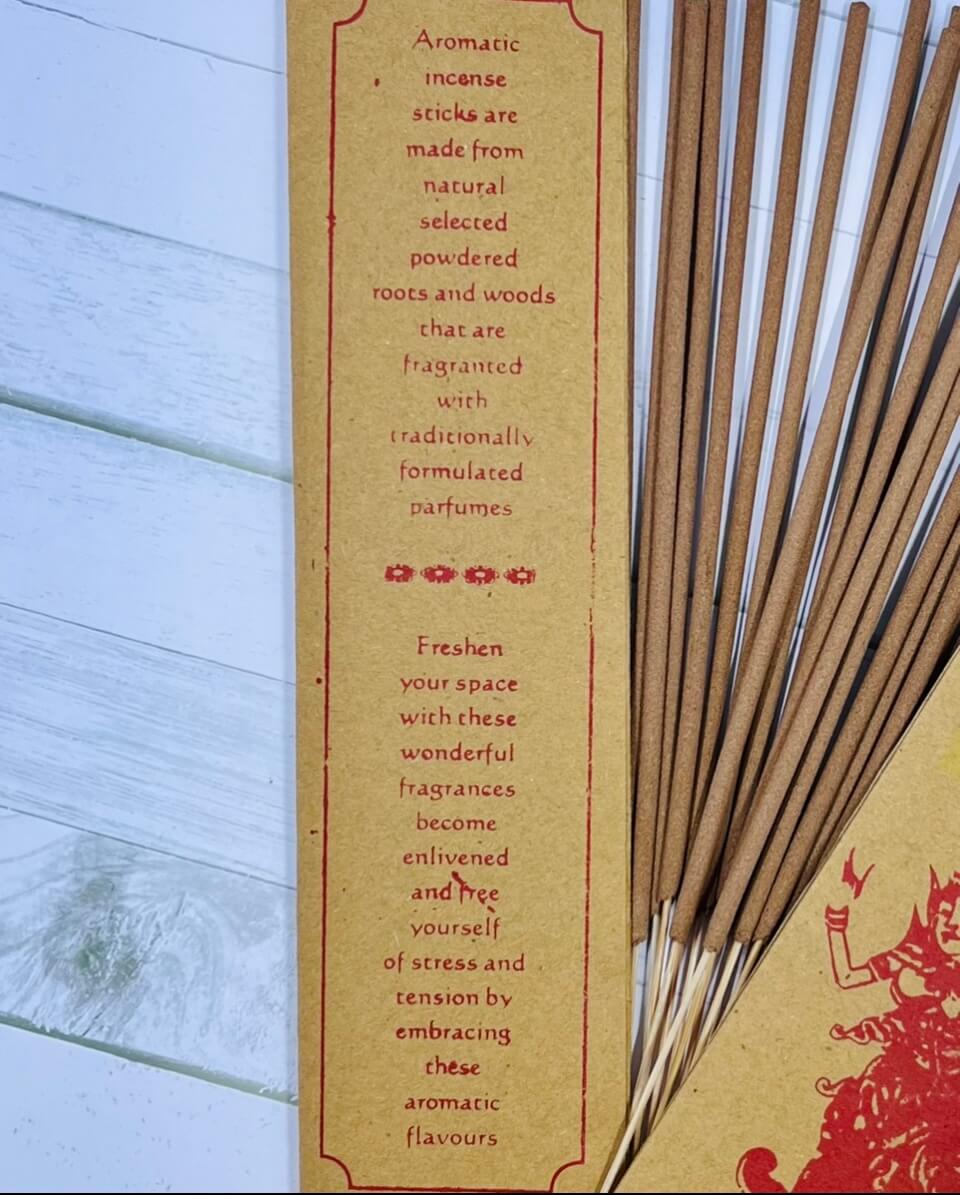 Aromatic
incense
sticks are
made from
natural
selected
powdered
roots and woods
that are
fragranted
with
traditionally
formulated
parfumes
Freshen
your space
with these
wonderful
fragrances
become
enlivened
and free
yourself
of stress and
tension by
embracing
these
aromatic
flavours